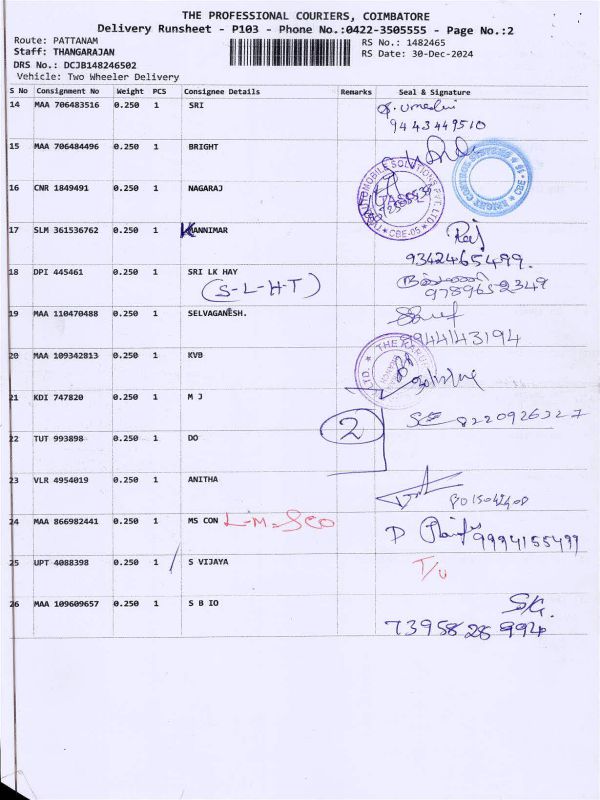 THE PROFESSIONAL COURIERS, COIMBATORE
Delivery Runsheet - P103 - Phone No.:0422-3505555 - Page No.:2
Route: PATTANAM
RS No.: 1482465
Staff: THANGARAJAN
RS Date: 30-Dec-2024
DRS No.: DCJB148246502
Vehicle: Two Wheeler Delivery
S No Consignment No Weight PCS Consignee Details Remarks Seal & Signature
14 MAA 706483516 0.250 1 SRI
9443449510
15 MAA 706484496 0.250 1 BRIGHT
16 CNR 1849491 0.250 1 NAGARAJ
AUTOMOBILE SOLUTIONS PVT. LTD. CBE-05
17 SLM 361536762 0.250 1 KANNIMAR Raj
9342465499.
18 DPI 445461 0.250 1 SRI LK HAY
(S-L-H-T) 9789652349
19 MAA 110470488 0.250 1 SELVAGANESH.
9944143194
20 MAA 109342813 0.250 1 KVB
THE KARUR
21 KDI 747820 0.250 1 M J
2 8220926327
22 TUT 993898 0.250 1 DO
23 VLR 4954019 0.250 1 ANITHA
24 MAA 866982441 0.250 1 MS CON
9994155499
25 UPT 4088398 0.250 1 S VIJAYA T/U
26 MAA 109609657 0.250 1 S B IO SK.
73958 28 994